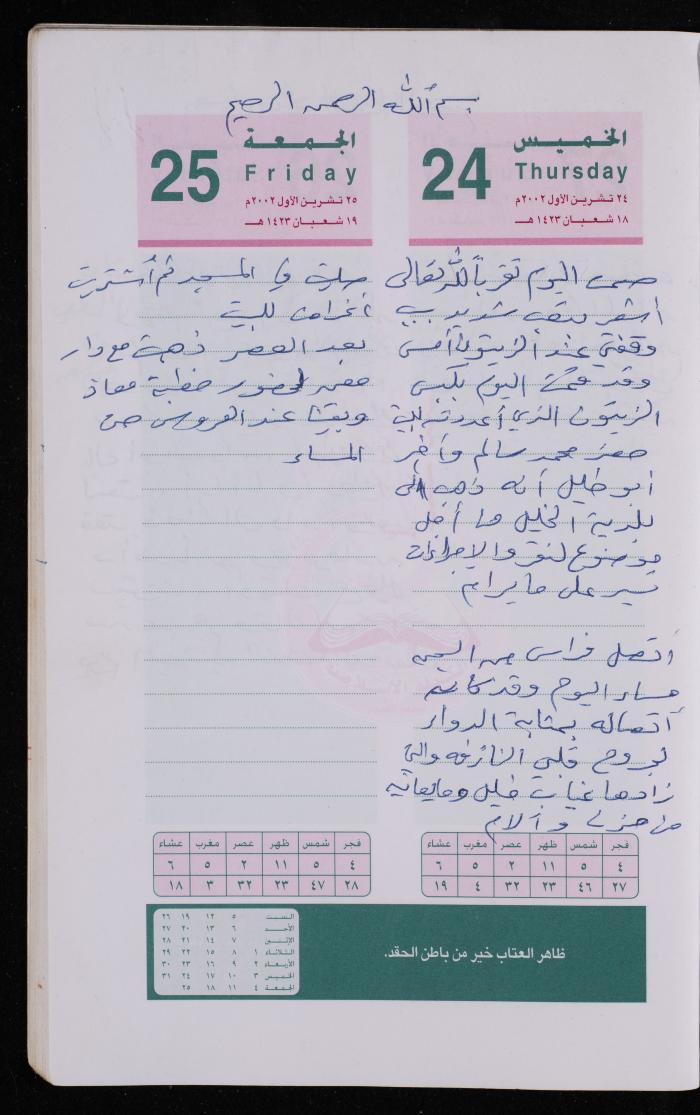 بسم الله الرحمن الرحيم
الخميس
24
Thursday
٢٤ تشرين الأول ٢٠٠٢م
١٨ شعبان ١٤٢٣ هـ
صمت اليوم تقرباً لله تعالى
أشعر بتعب شديد بسبب
وقفتي عند الزيتون أمس
وقد قمت اليوم بكبس
الزيتون الذي أعددته للبيت
حضر محمد سالم وأخبر
أبو خليل أنه ذهب إلى
بلدية الخليل من أجل
موضوع لنقر والإجراءات
تسير على ما يرام
اتصل فراس من السجن
مساء اليوم وقد كانت
اتصاله بمثابة الدواء
لجروح قلبي النازفة والتي
زادها غياب خليل وما يعانيه
من حزن وآلام
فجر شمس ظهر عصر مغرب عشاء
٤ ٥ ١١ ٢ ٥ ٦
٢٧ ٤٦ ٢٣ ٣٢ ٤ ١٩
الجمعة
25
Friday
٢٥ تشرين الأول ٢٠٠٢م
١٩ شعبان ١٤٢٣ هـ
صليت في المسجد ثم أشتريت
أغراض للبيت
بعد العصر ذهبت مع دار
لحضور خطبة معاذ
وبقينا عند العروس حتى
المساء
فجر شمس ظهر عصر مغرب عشاء
٤ ٥ ١١ ٢ ٥ ٦
٢٨ ٤٧ ٢٣ ٣٢ ٣ ١٨
ظاهر العتاب خير من باطن الحقد.
السبت ٥ ١٢ ١٩ ٢٦
الأحد ٦ ١٣ ٢٠ ٢٧
الإثنين ٧ ١٤ ٢١ ٢٨
الثلاثاء ١ ٨ ١٥ ٢٢ ٢٩
الأربعاء ٢ ٩ ١٦ ٢٣ ٣٠
الخميس ٣ ١٠ ١٧ ٢٤ ٣١
الجمعة ٤ ١١ ١٨ ٢٥